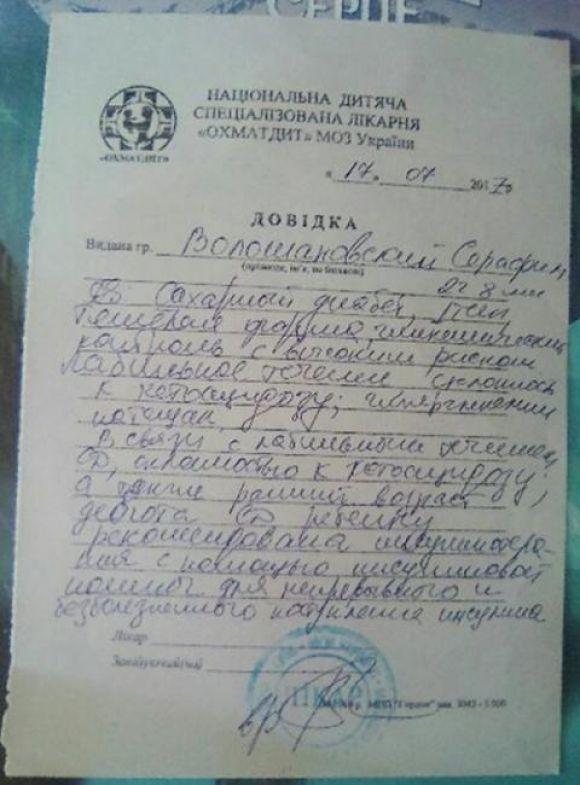 СЕРЦЕ
НАЦІОНАЛЬНА ДИТЯЧА
СПЕЦІАЛІЗОВАНА ЛІКАРНЯ
«ОХМАТДИТ» МОЗ України
«ОХМАТДИТ»
« 17 » 07 2017 р
ДОВІДКА
Видана гр. Волошановский Серафим
(прізвище, ім'я, по батькові)
2г 8 мес
DS: Сахарный диабет, I тип
тяжелая форма, гликемический
контроль с высоким риском
Лабильное течение склонность
к кетоацидозу; гипергликемии
натощак
В связи с лабильным течением
СД, склонностью к кетоацидозу;
а также ранний возраст
дебюта СД ребенку
рекомендована инсулинотера-
пия с помощью инсулиновой
помпы для непрерывного и
безболезненного поступления инсулина
Лікар
Завідуючий(ча)
ЛІКАР
МПП "Гердан" зам. 3043 - 5 000